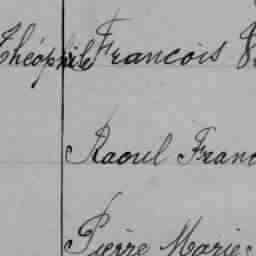 Théophile François
Raoul Franc
Pierre Marie